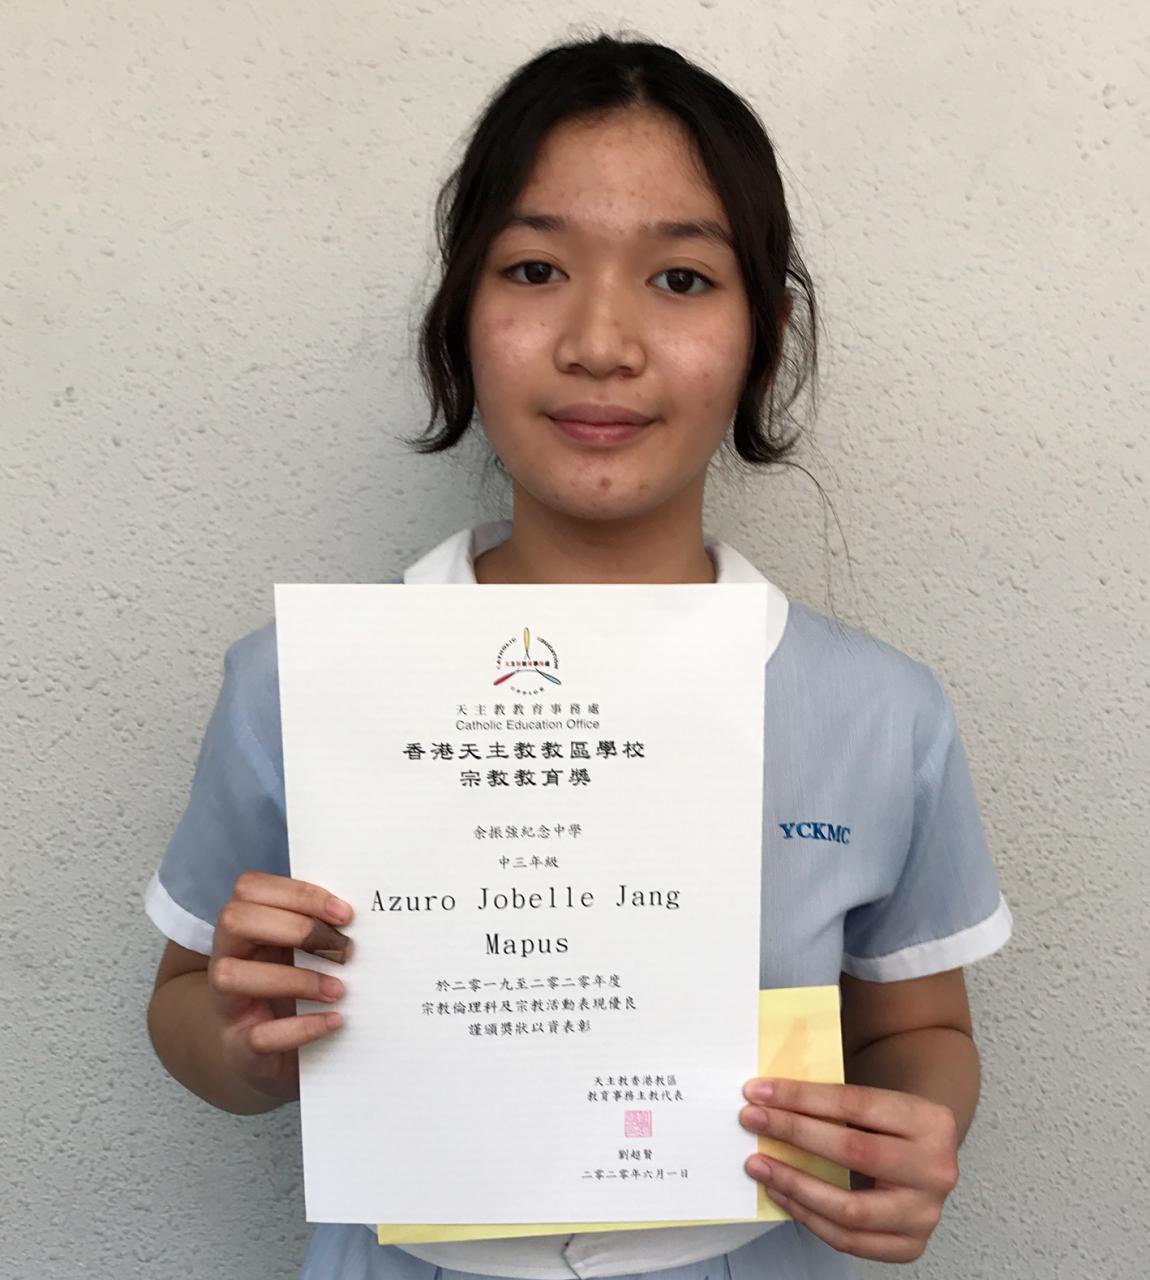 CATHOLIC EDUCATION OFFICE
天主教教育事務處
天主教教育事務處
Catholic Education Office
香港天主教教區學校
宗教教育獎
余振強紀念中學
中三年級
Azuro Jobelle Jang
Mapus
於二零一九至二零二零年度
宗教倫理科及宗教活動表現優良
謹頒獎狀以資表彰
天主教香港教區
教育事務主教代表
劉超賢
二零二零年六月一日
YCKMC